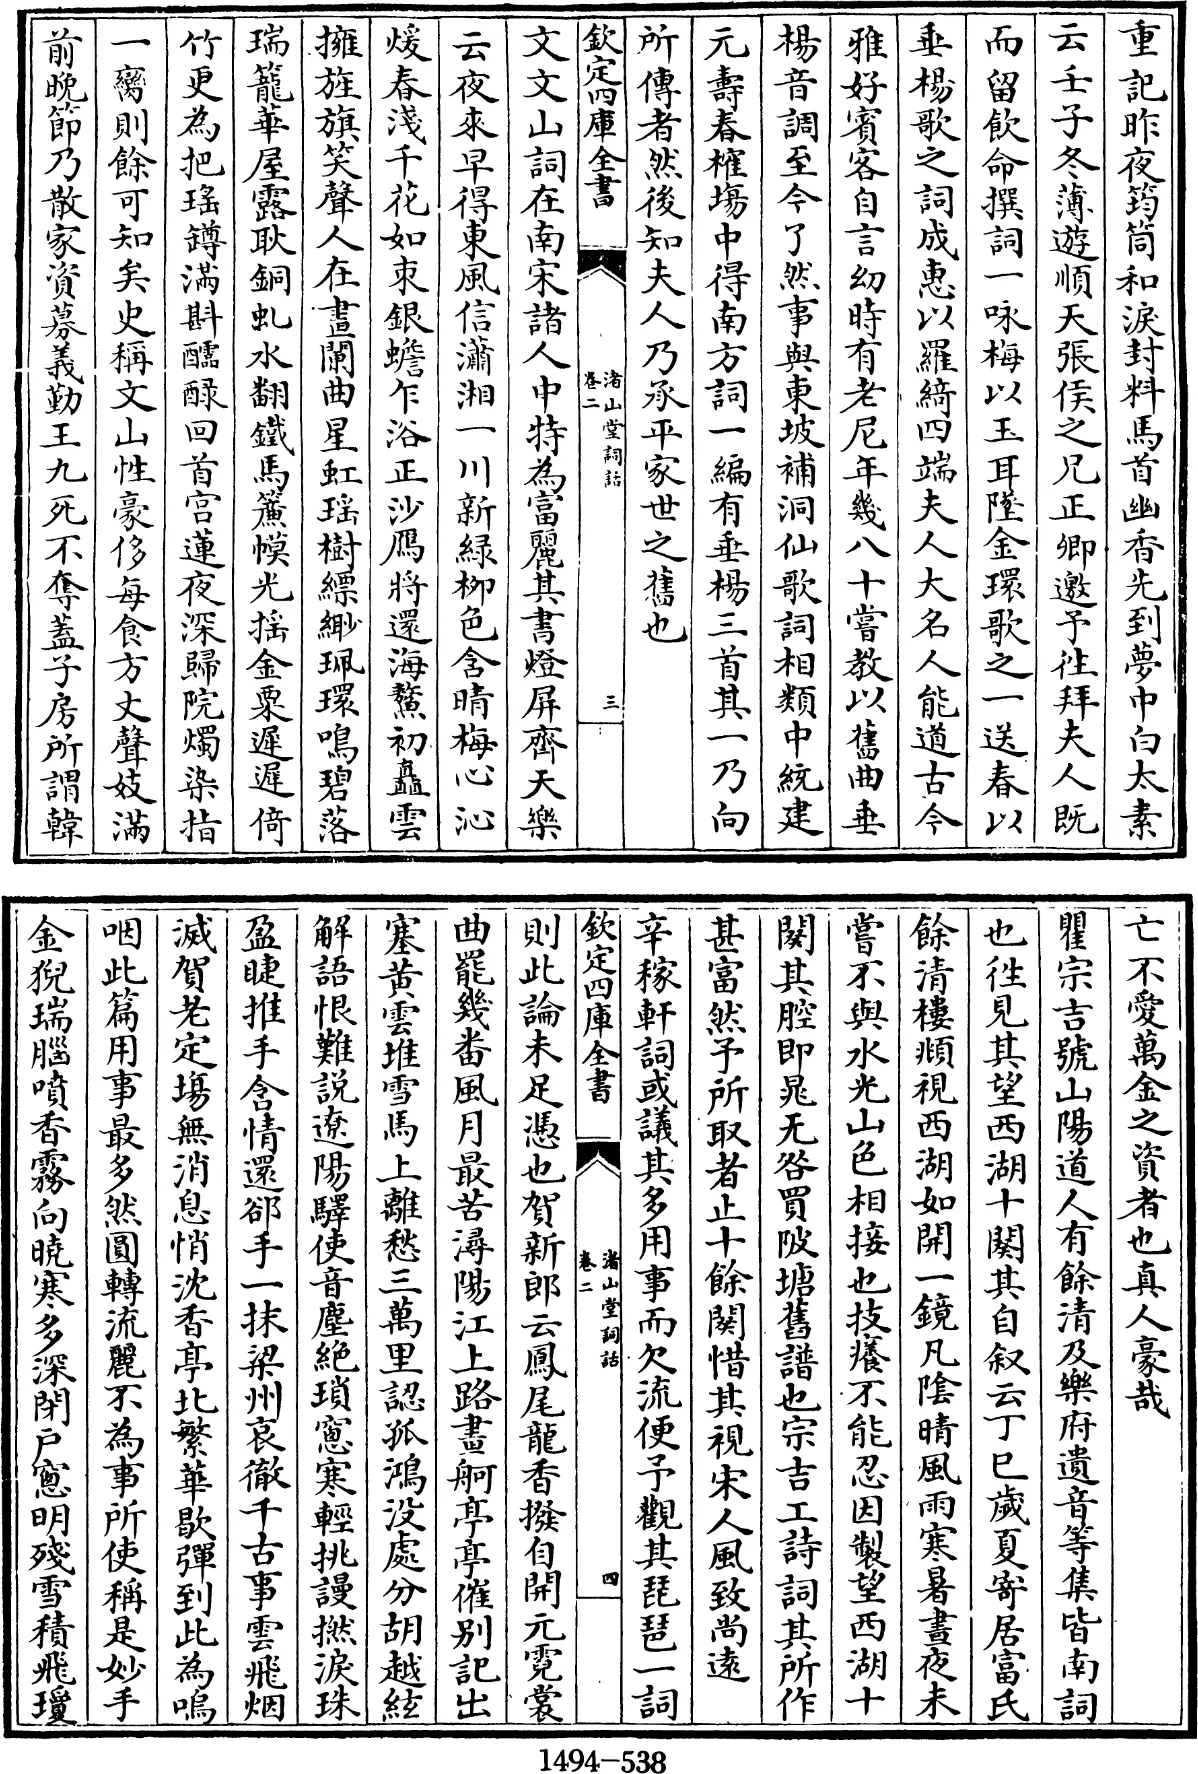 重記昨夜筠筒和淚封料馬首幽香先到夢中白太素
云壬子冬薄遊順天張侯之兄正卿邀予徃拜夫人既
而留飲命撰詞一咏梅以玉耳墜金環歌之一送春以
垂楊歌之詞成惠以羅綺四端夫人大名人能道古今
雅好賓客自言幼時有老尼年幾八十嘗教以舊曲垂
楊音調至今了然事與東坡補洞仙歌詞相類中統建
元壽春榷塲中得南方詞一編有垂楊三首其一乃向
所傳者然後知夫人乃承平家世之舊也
欽定四庫全書
渚山堂詞話
卷二
三
文文山詞在南宋諸人中特為富麗其書燈屏齊天樂
云夜來早得東風信瀟湘一川新緑栁色含晴梅心沁
煖春淺千花如束銀蟾乍浴正沙鴈將還海鰲初矗雲
擁旌旗笑聲人在畫闌曲星虹瑶樹縹緲珮環鳴碧落
瑞籠華屋露耿銅虬水翻鐵馬簾幙光揺金粟遲遲倚
竹更為把瑶罇滿斟醽醁回首宫蓮夜深歸院燭染指
一臠則餘可知矣史稱文山性豪侈每食方丈聲妓滿
前晩節乃散家資募義勤王九死不奪蓋子房所謂韓
亡不愛萬金之資者也真人豪哉
瞿宗吉號山陽道人有餘清及樂府遺音等集皆南詞
也徃見其望西湖十闋其自叙云丁巳歲夏寄居富氏
餘清樓頫視西湖如開一鏡凡陰晴風雨寒暑晝夜未
嘗不與水光山色相接也技癢不能忍因製望西湖十
闋其腔即晁无咎買陂塘舊譜也宗吉工詩詞其所作
甚富然予所取者止十餘闋惜其視宋人風致尚逺
辛稼軒詞或議其多用事而欠流便予觀其琵琶一詞
欽定四庫全書
渚山堂詞話
卷二
四
則此論未足憑也賀新郎云鳳尾龍香撥自開元霓裳
曲罷幾畨風月最苦潯陽江上路畫舸亭亭催别記出
塞黄雲堆雪馬上離愁三萬里認孤鴻没處分胡越絃
解語恨難説遼陽驛使音塵絶瑣窻寒輕挑謾撚淚珠
盈睫推手含情還郤手一抹梁州哀徹千古事雲飛烟
滅賀老定塲無消息悄沈香亭北繁華歇彈到此為嗚
咽此篇用事最多然圓轉流麗不為事所使稱是妙手
金猊瑞腦噴香霧向曉寒多深閉戸窻明殘雪積飛瓊
1494-538